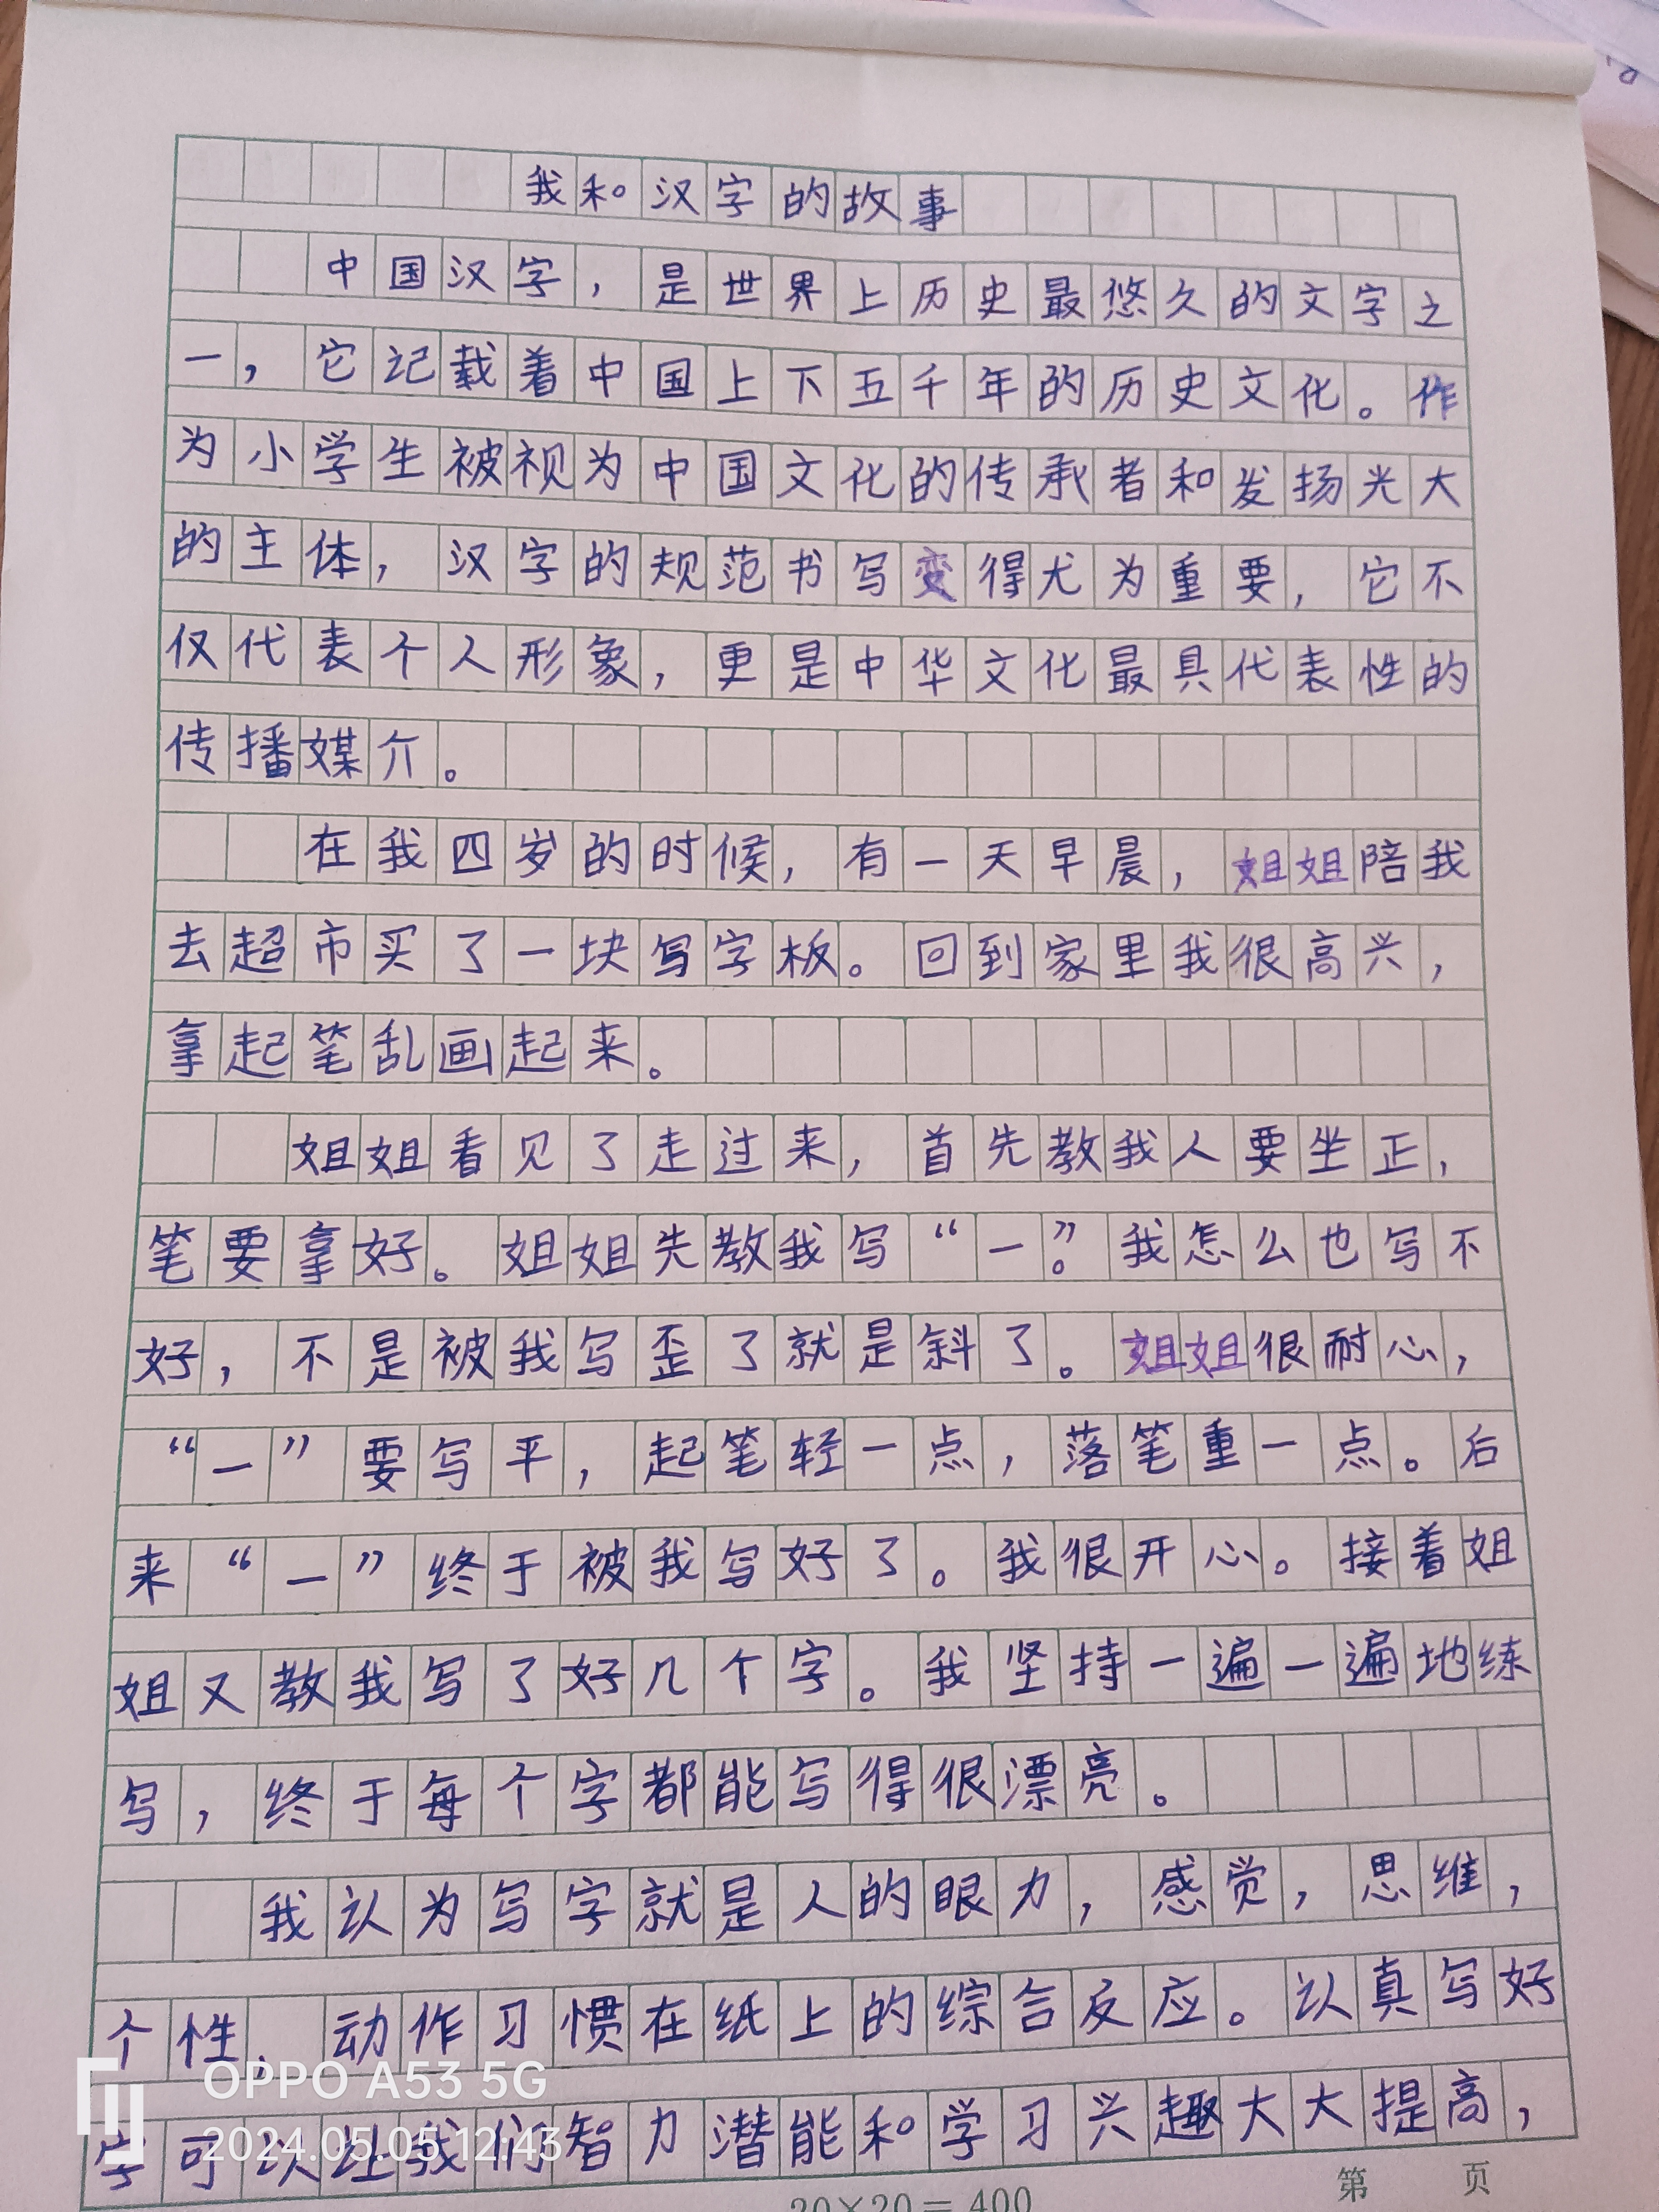 我和汉字的故事
中国汉字，是世界上历史最悠久的文字之
一，它记载着中国上下五千年的历史文化。作
为小学生被视为中国文化的传承者和发扬光大
的主体，汉字的规范书写变得尤为重要，它不
仅代表个人形象，更是中华文化最具代表性的
传播媒介。
在我四岁的时候，有一天早晨，姐姐陪我
去超市买了一块写字板。回到家里我很高兴，
拿起笔乱画起来。
姐姐看见了走过来，首先教我人要坐正，
笔要拿好。姐姐先教我写“一”。我怎么也写不
好，不是被我写歪了就是斜了。姐姐很耐心，
“一”要写平，起笔轻一点，落笔重一点。后
来“一”终于被我写好了。我很开心。接着姐
姐又教我写了好几个字。我坚持一遍一遍地练
写，终于每个字都能写得很漂亮。
我认为写字就是人的眼力，感觉，思维，
个性，动作习惯在纸上的综合反应。认真写好
字可以让我们智力潜能和学习兴趣大大提高，
OPPO A53 5G
2024.05.05 12:43
20×20=400
第 页